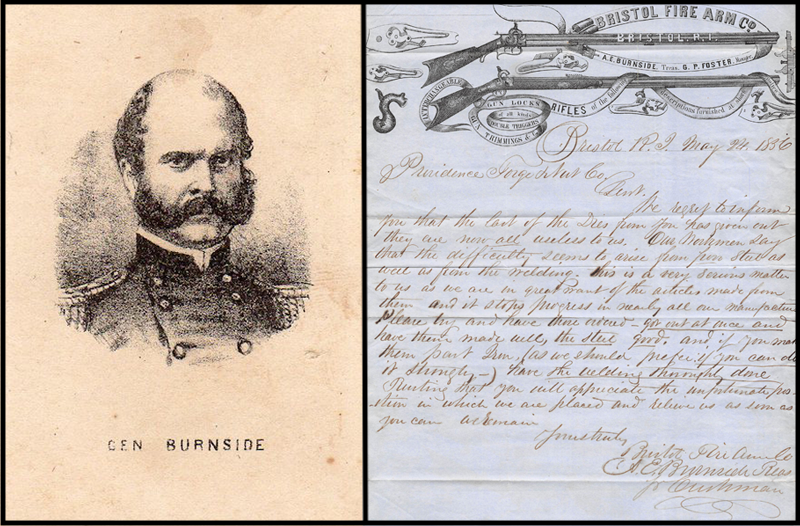 GEN BURNSIDE
BRISTOL FIRE ARM CO.
BRISTOL, R.I.
A.E. BURNSIDE, Treas. G. P. FOSTER,
INTERCHANGEABLE
GUN LOCKS
of all kinds
DOUBLE TRIGGERS
TRIMMINGS &c.
RIFLES of the following descriptions furnished at short
Bristol R. I. May 24. 1856
Providence Forge & Nut Co.
Gent.
We regret to inform
you that the last of the Dies from you has given out
they are now all useless to us. Our Workmen say
that the difficulty seems to arise from poor steel as
well as from the welding. this is a very serious matter
to us as we are in great want of the articles made from
them and it stops progress in nearly all our manufacture
Please try and have those ordered got out at once and
have them made well, the steel good. and if you make
them part Iron, (as we should prefer if you can do
it strongly—) have the welding thoroughly done
Trusting that you will appreciate the unfortunate po-
sition in which we are placed and relieve us as soon as
you can we remain
Yours truly
Bristol Fire Arm Co
A. E. Burnside Treas
pr Cushman